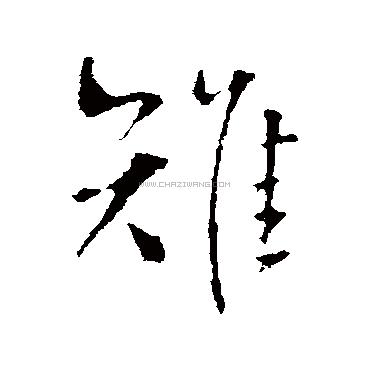 雉
WWW.CHAZIWANG.COM